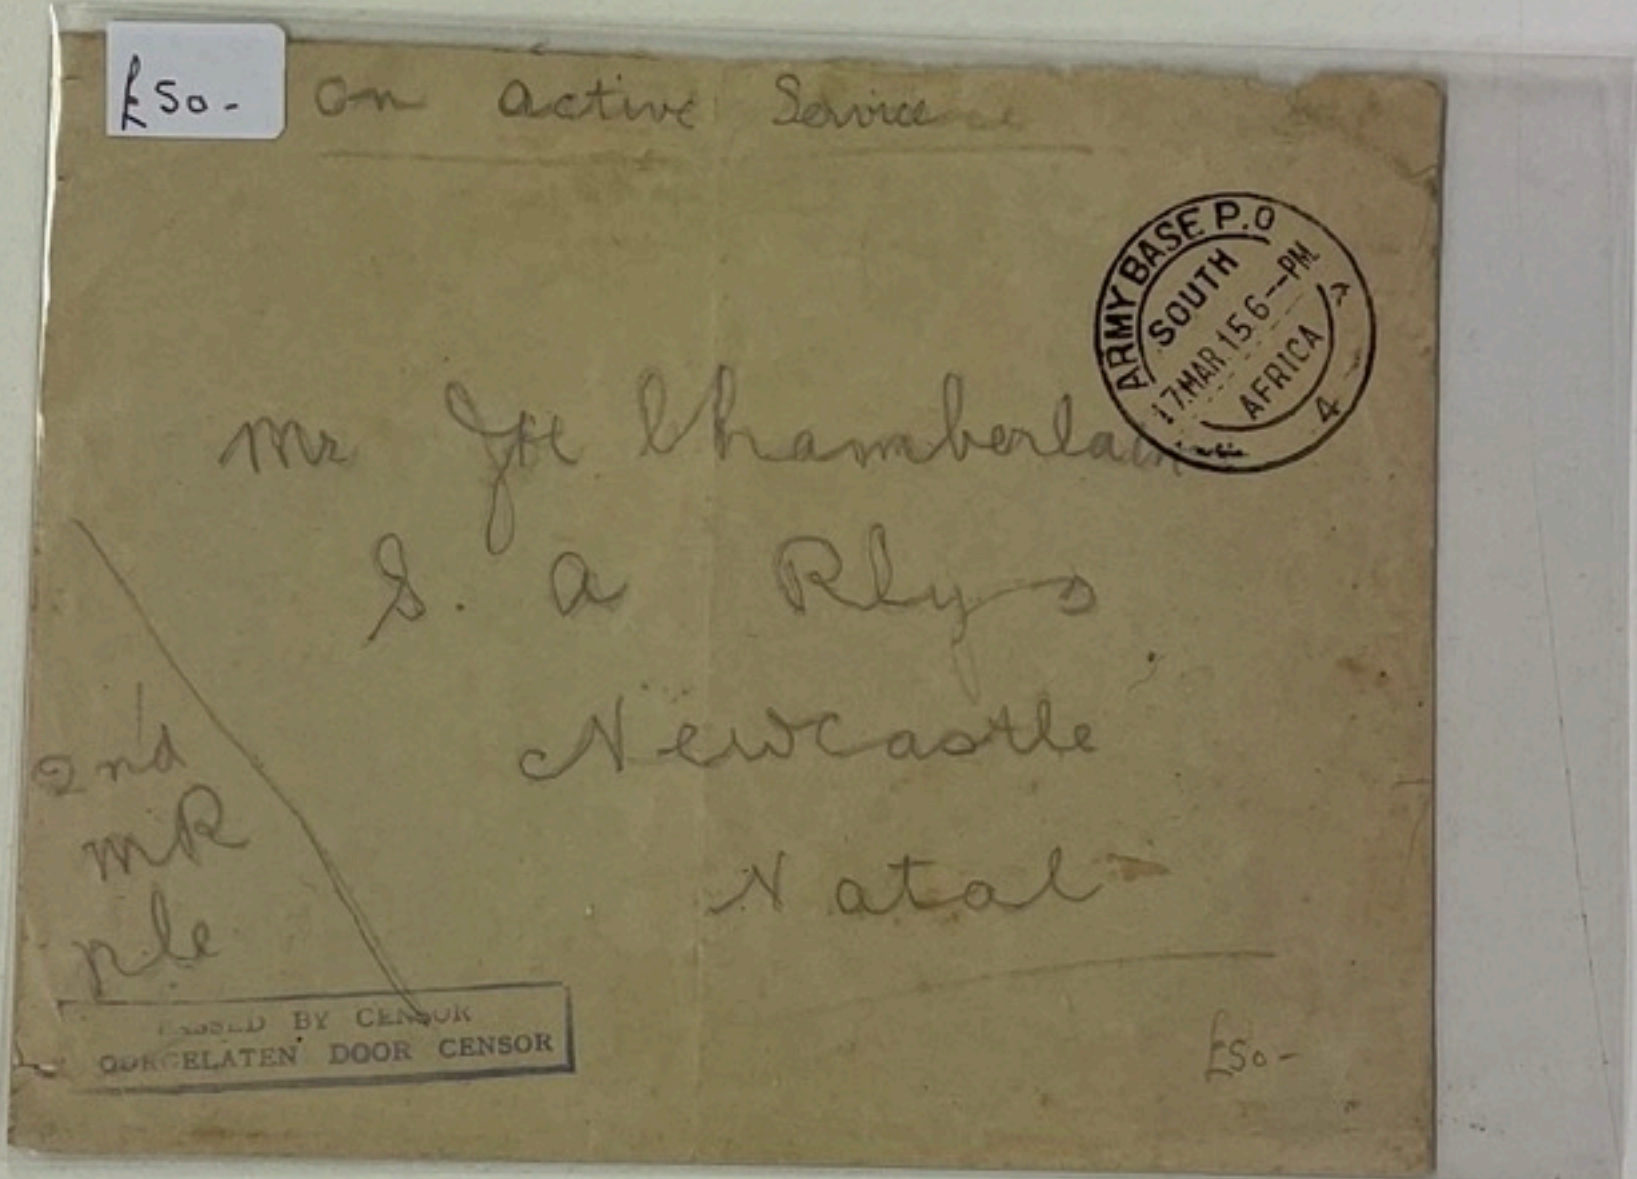 £50-
On Active Service
ARMY BASE P.O
SOUTH
17 MAR 15 6-PM
AFRICA
4
Mr Joe Chamberlain
S. A Rlys
Newcastle
Natal
2nd
MR
PASSED BY CENSOR
DOORGELATEN DOOR CENSOR
£50-